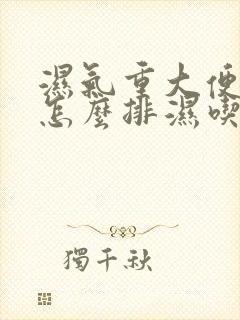 濕氣重大便
怎麼排濕喫
獨千秋